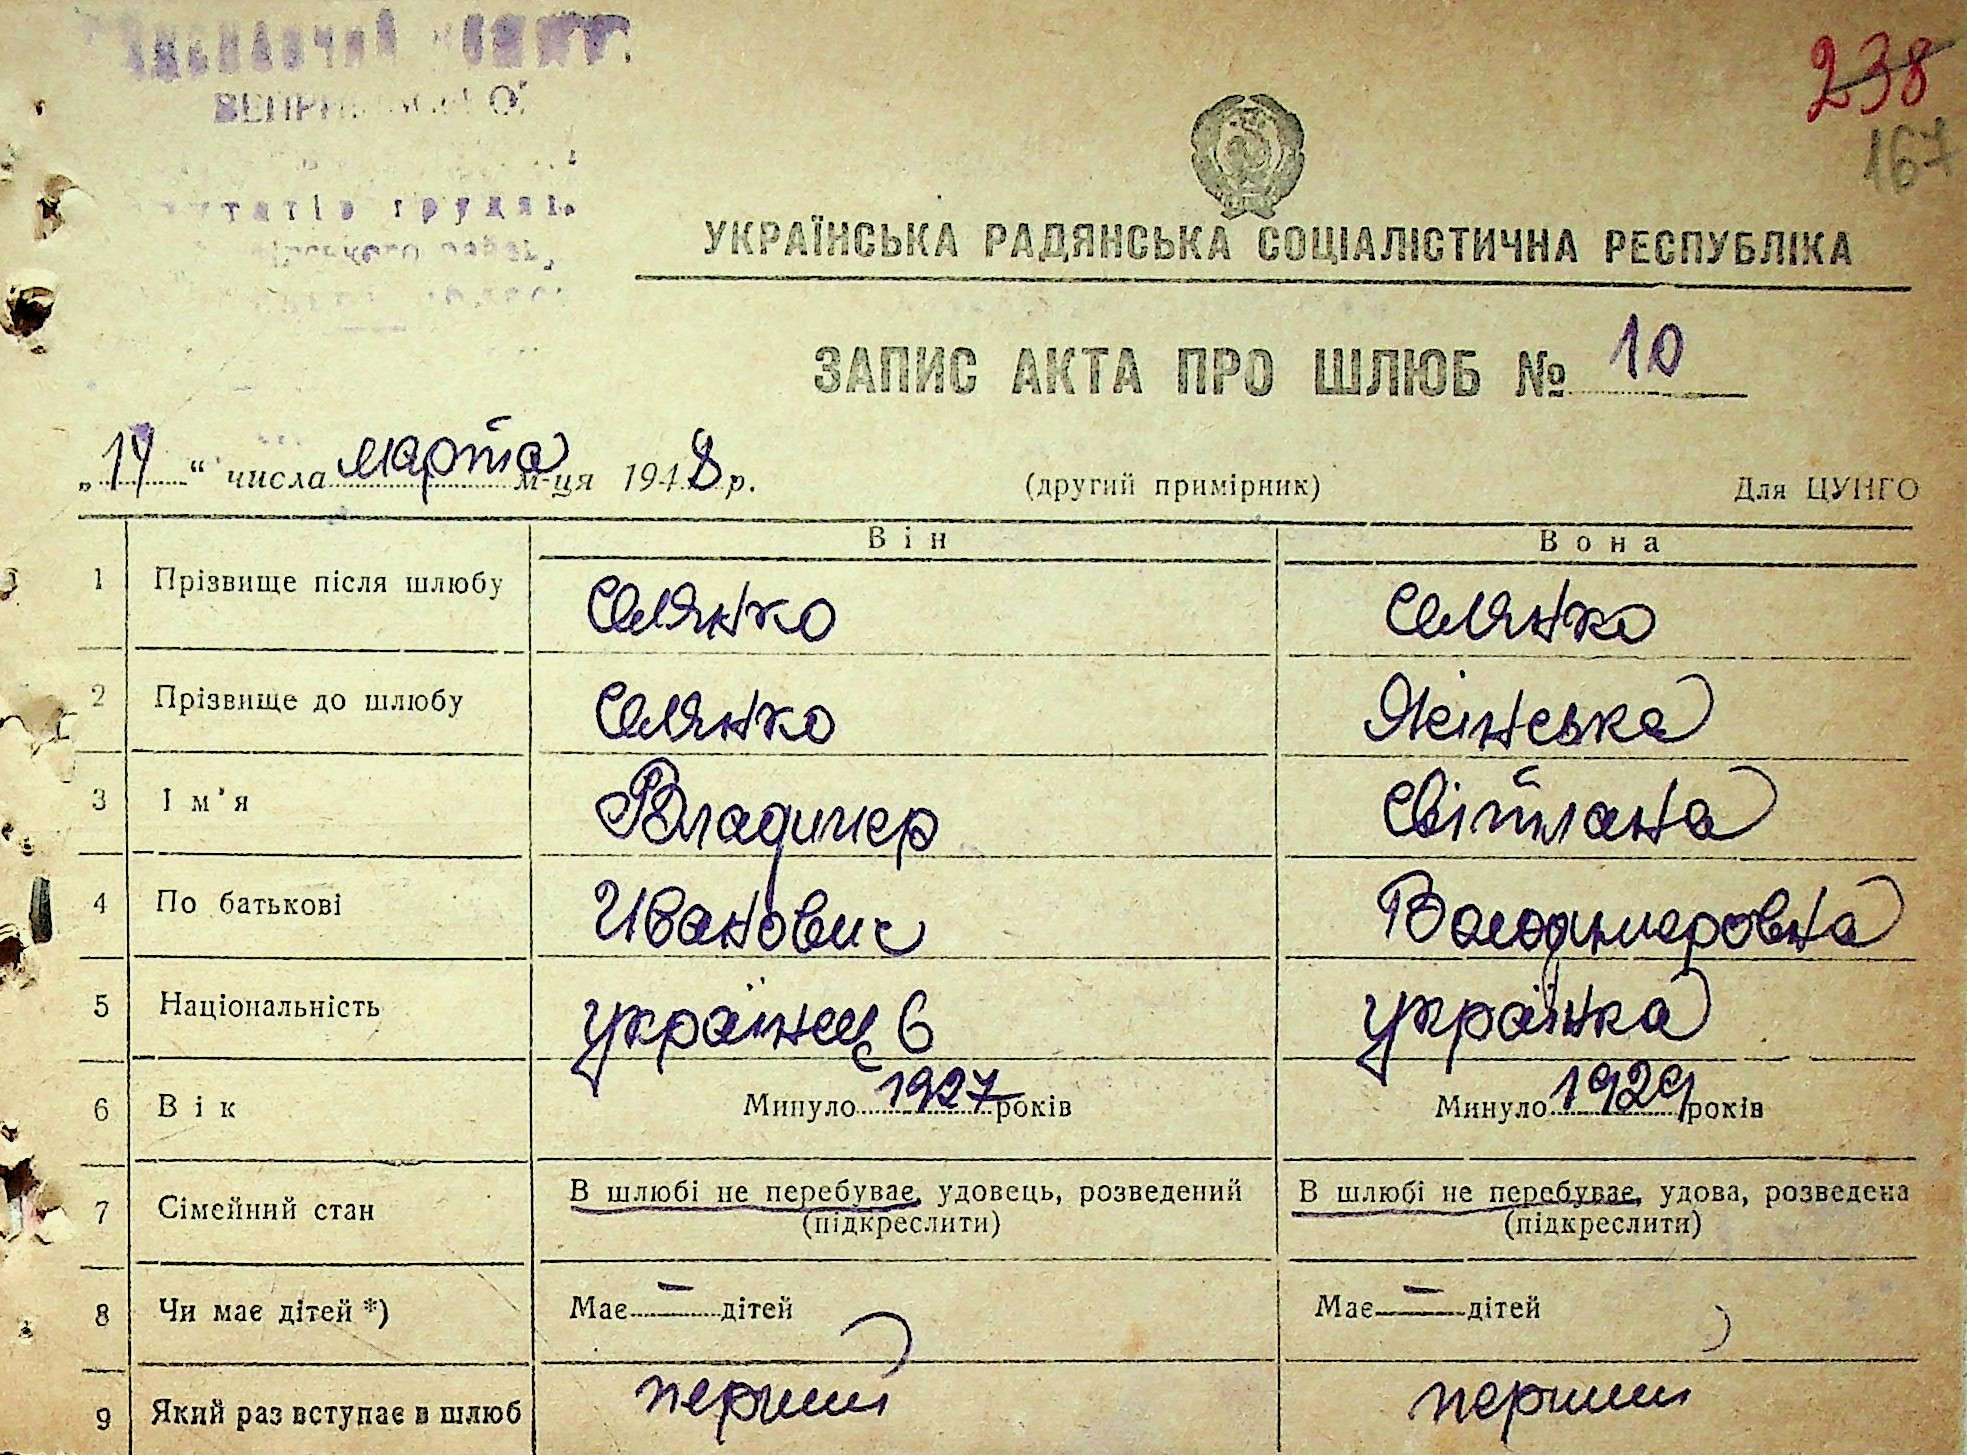 238
167
УКРАЇНСЬКА РАДЯНСЬКА СОЦІАЛІСТИЧНА РЕСПУБЛІКА
ЗАПИС АКТА ПРО ШЛЮБ № 10
„14“ числа марта м-ця 1948 р. (другий примірник) Для ЦУНГО
Він Вона
1 Прізвище після шлюбу Селянко Селянко
2 Прізвище до шлюбу Селянко Якінська
3 Ім'я Владимер Світлана
4 По батькові Иванович Володимеровна
5 Національність українец 6 українка
6 Вік Минуло 1927 років Минуло 1929 років
7 Сімейний стан В шлюбі не перебуває, удовець, розведений В шлюбі не перебуває, удова, розведена
(підкреслити) (підкреслити)
8 Чи має дітей *) Має — дітей Має — дітей
9 Який раз вступає в шлюб перший перший